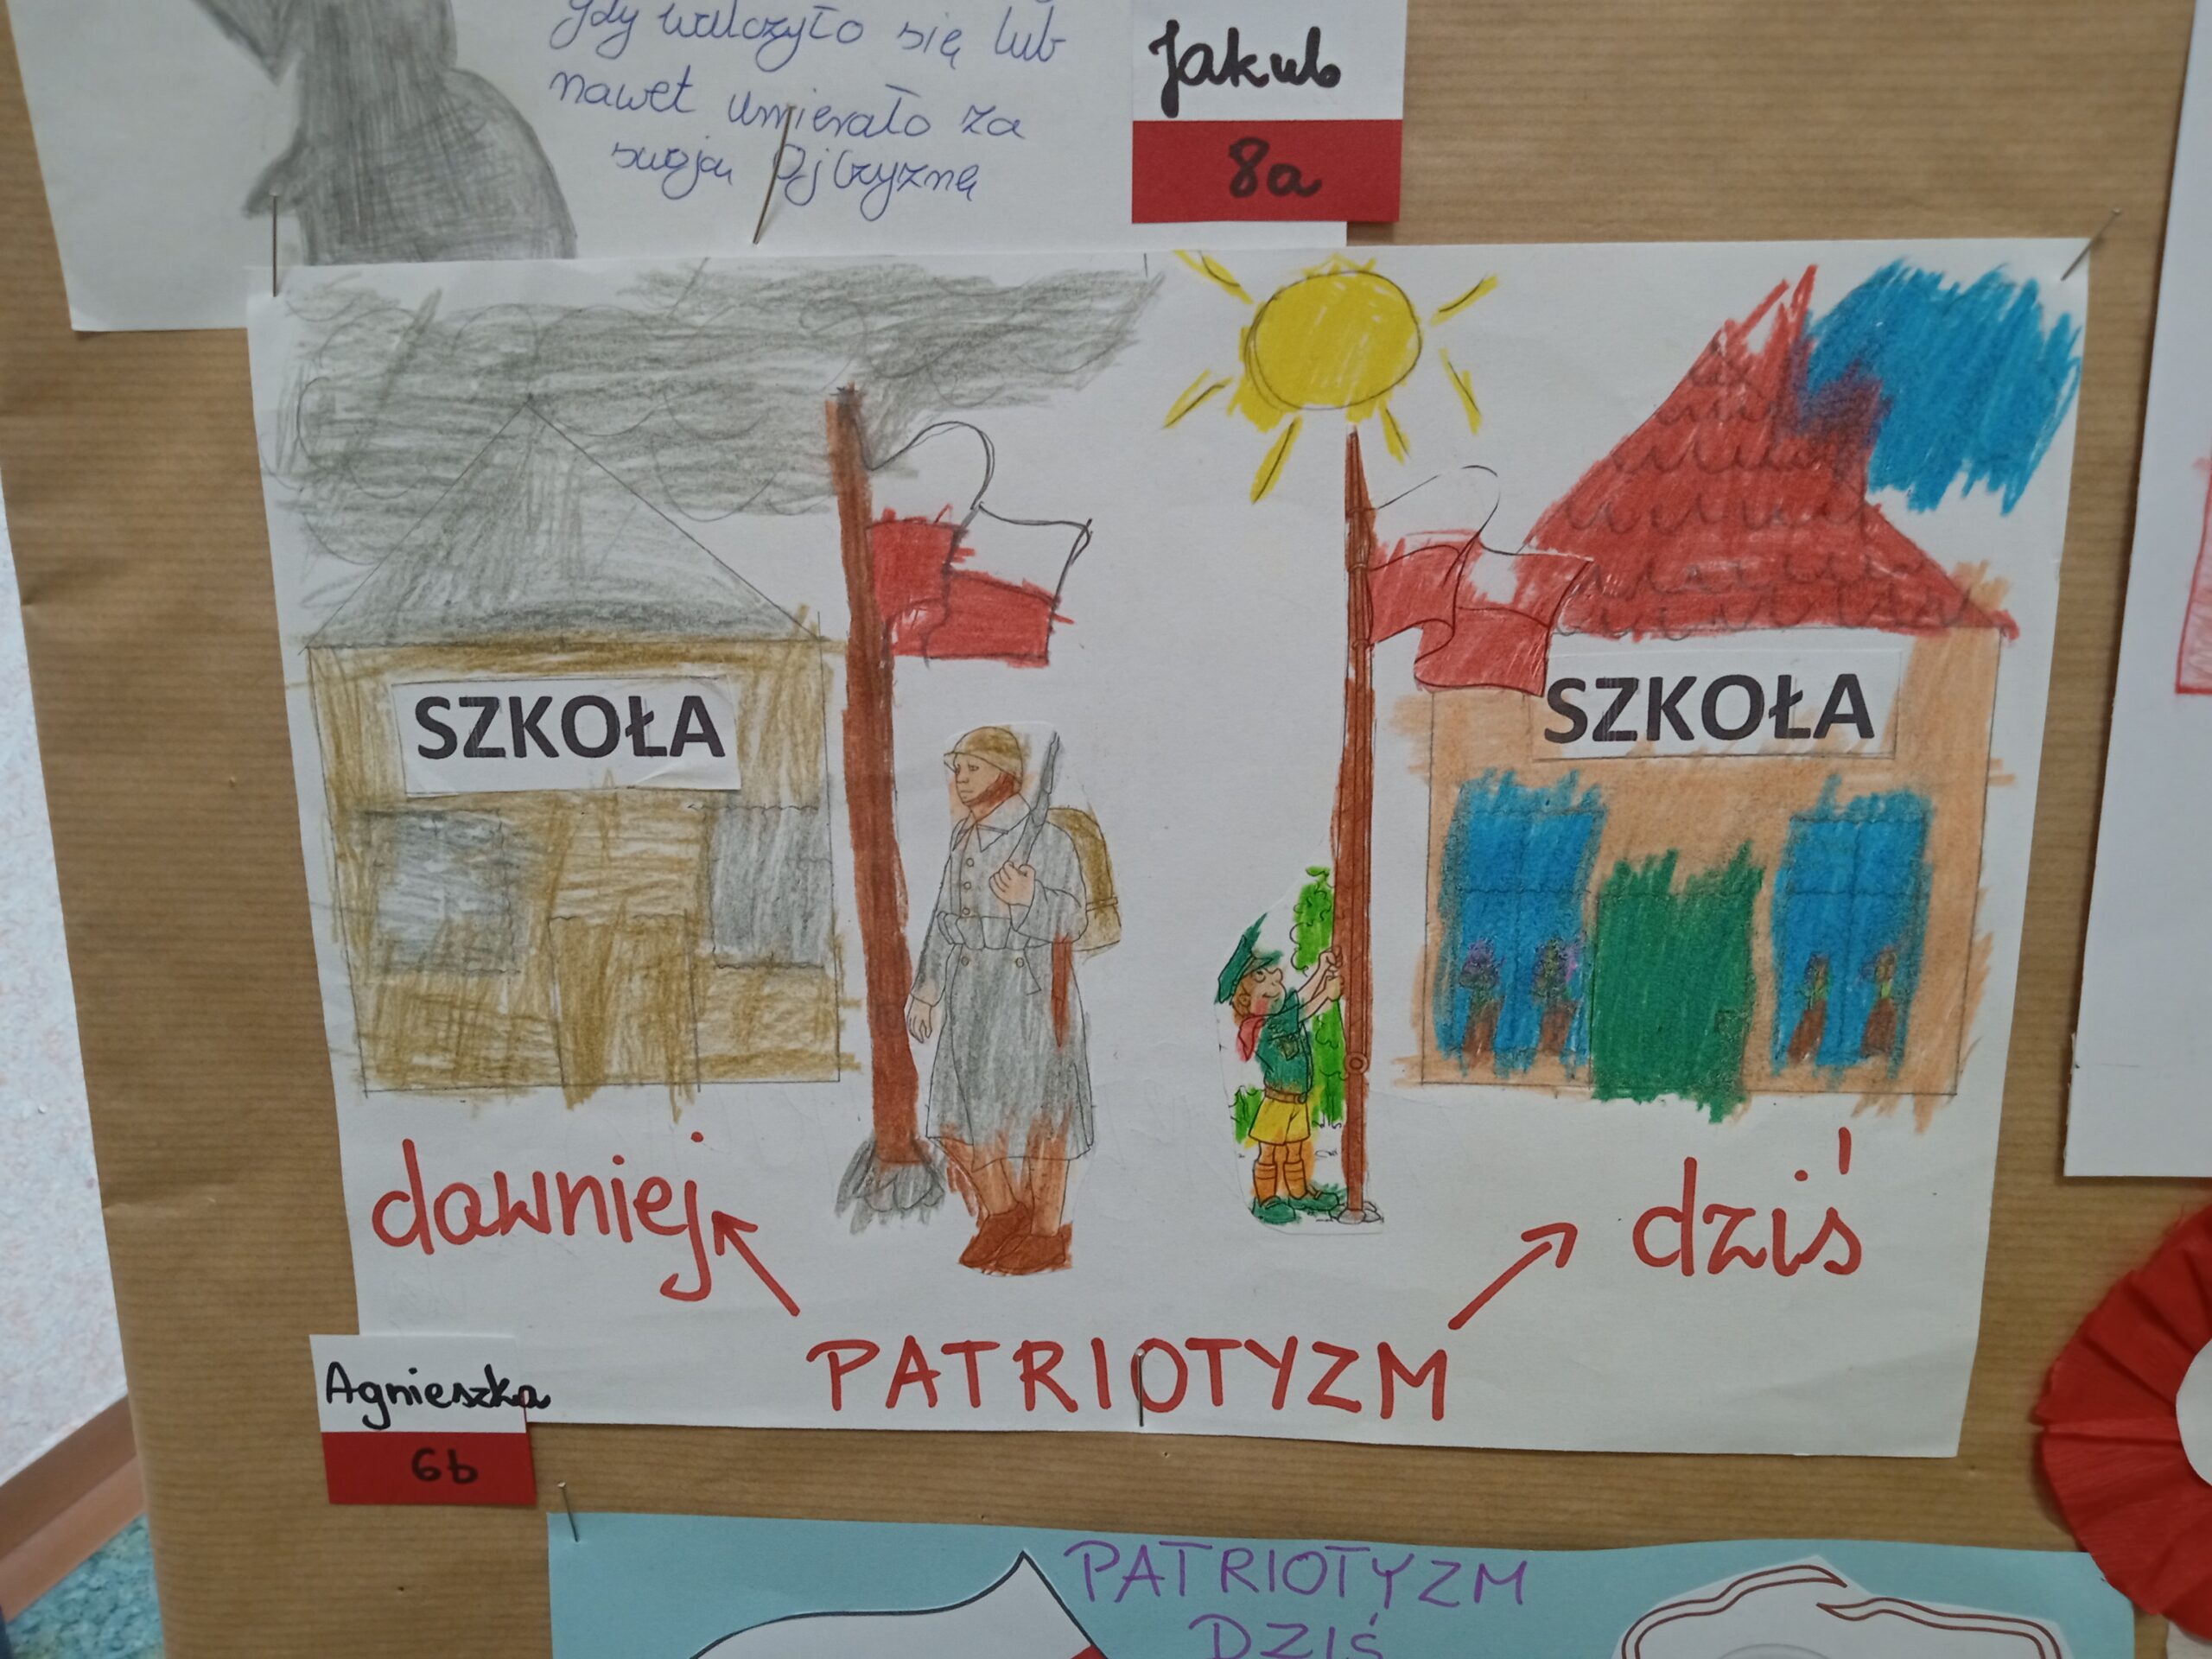 gdy walczyło się lub
nawet umierało za
swoją Ojczyznę
Jakub
8a
SZKOŁA
SZKOŁA
dawniej
dziś
PATRIOTYZM
Agnieszka
6b
PATRIOTYZM
DZIŚ